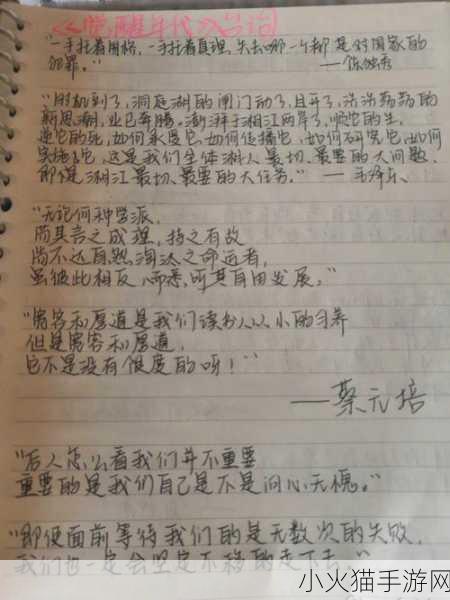 《觉醒年代》台词
"一手托着国格,一手托着真理,失去哪一个都是对国家的
犯罪。" ——陈独秀
"时机到了,洞庭湖的闸门动了,且开了,浩浩荡荡的
新思潮,业已奔腾澎湃于湘江两岸了,顺它的生,
逆它的死,如何承受它,如何传播它,如何研究它,如何
实施它,这是我们全体湘人最切、最要的大问题,
即是湘江最切、最要的大任务。" ——毛泽东
"无论何种学派,
苟其言之成理,持之有故
尚不达自然淘汰之命运者,
虽彼此相反,而悉听其自由发展。"
"宽容和厚道是我们读书人从小的习养
但是宽容和厚道,
它不是没有限度的呀!"
——蔡元培
"后人怎么看我们并不重要
重要的是我们自己是不是问心无愧。"
"即使面前等待我们的是无数次的失败,
我们也一定会坚定不移的走下去。"
小火猫手游网